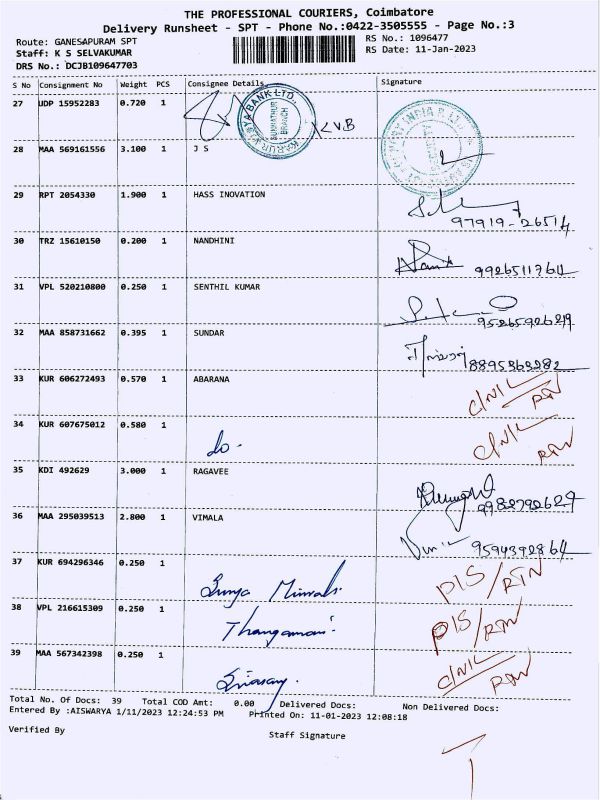 THE PROFESSIONAL COURIERS, Coimbatore
Delivery Runsheet - SPT - Phone No.:0422-3505555 - Page No.:3
Route: GANESAPURAM SPT
RS No.: 1096477
Staff: K S SELVAKUMAR
RS Date: 11-Jan-2023
DRS No.: DCJB109647703
S No Consignment No Weight PCS Consignee Details Signature
27 UDP 15952283 0.720 1 KVB
28 MAA 569161556 3.100 1 J S
29 RPT 2054330 1.900 1 HASS INOVATION
97919-26514
30 TRZ 15610150 0.200 1 NANDHINI
9926511764
31 VPL 520210800 0.250 1 SENTHIL KUMAR
32 MAA 858731662 0.395 1 SUNDAR
8895363282
33 KUR 606272493 0.570 1 ABARANA
C/NIL
RTN
34 KUR 607675012 0.580 1 do. C/NIL
RTN
35 KDI 492629 3.000 1 RAGAVEE
36 MAA 295039513 2.800 1 VIMALA
9594392864
37 KUR 694296346 0.250 1
PIS/RTN
38 VPL 216615309 0.250 1 Thangamani
PIS/RTN
39 MAA 567342398 0.250 1
C/NIL
RTN
Total No. Of Docs: 39 Total COD Amt: 0.00 Delivered Docs: Non Delivered Docs:
Entered By :AISWARYA 1/11/2023 12:24:53 PM Printed On: 11-01-2023 12:08:18
Verified By
Staff Signature